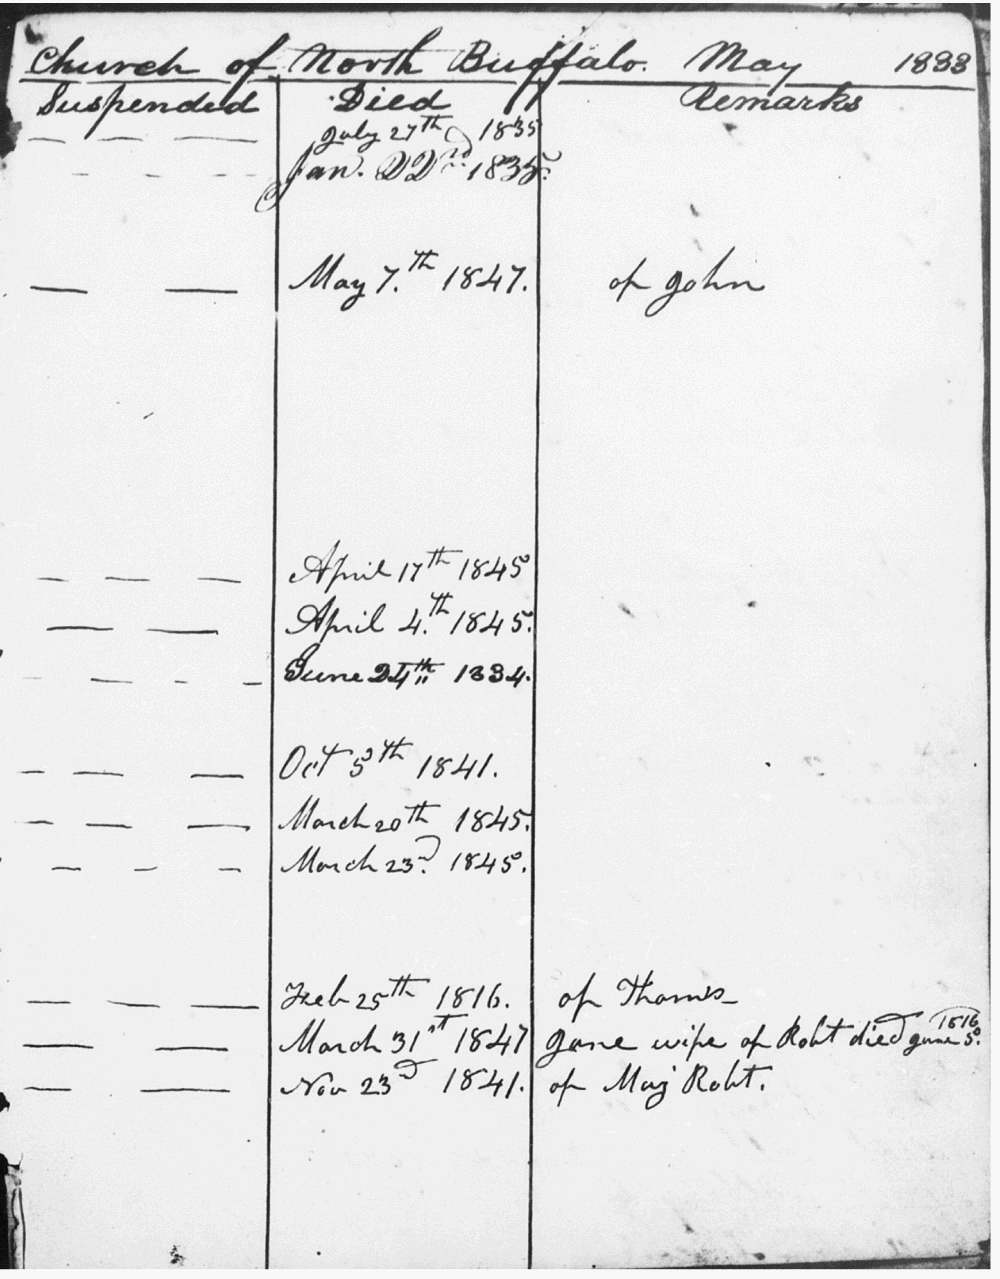 Church of North Buffalo. May 1833
Suspended Died Remarks
— — — July 27th 1835
- - - - Jan. 22nd 1835.
— — May 7th 1847. of John
— — — April 17th 1845
— — April 4th 1845.
- - - - June 24th 1834.
— — — Oct 5th 1841.
— — — March 20th 1845.
— — — March 23d. 1845.
— — — Feb 25th 1816. of Thomas
— — March 31st 1847 Jane wife of Robt died June 5. 1816
— — Nov 23d 1841. of Maj Robt.